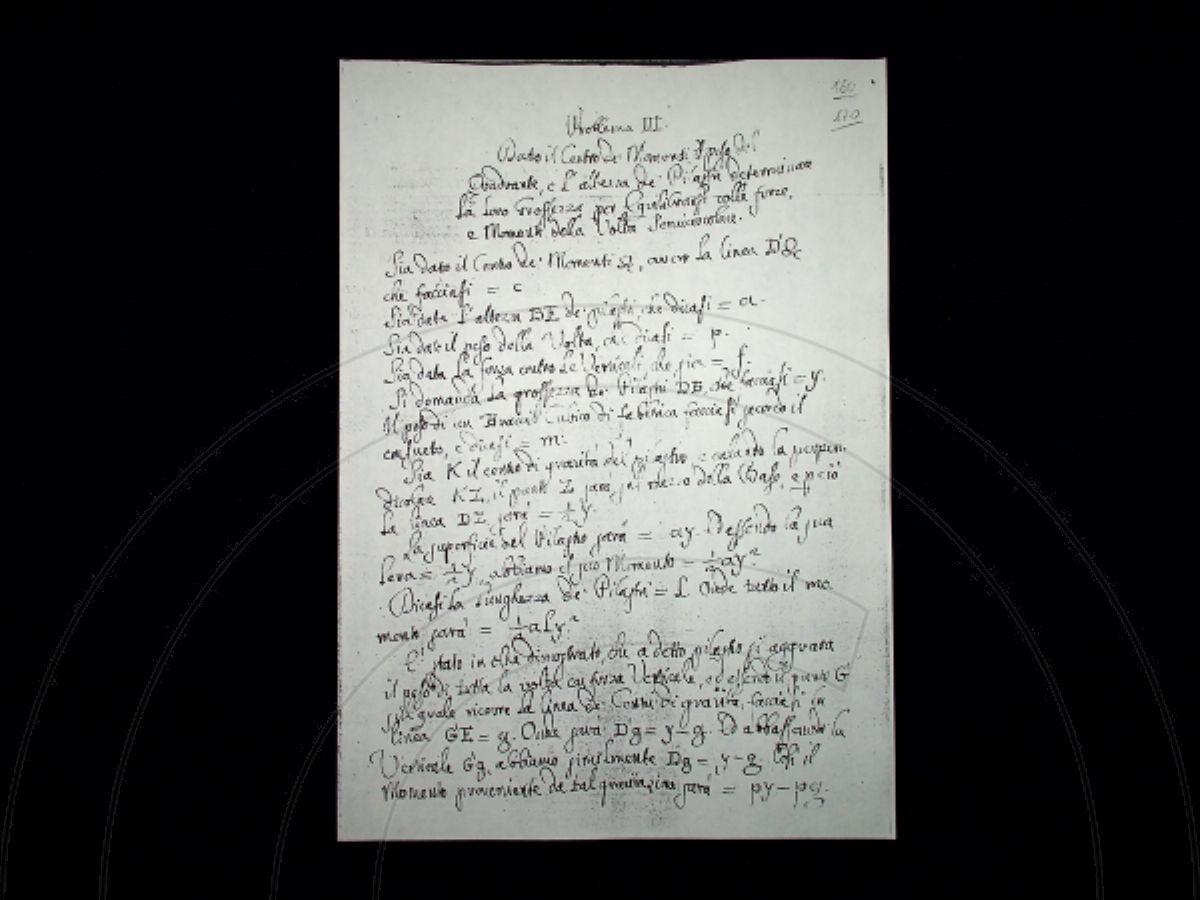 160
170
Problema III.
Dato il Centro de' Momenti, il peso del
Quadrante, e l'altezza de' Pilastri determinare
La loro Grossezza per Equilibrarsi colle forze,
e Momenti della Volta Semicircolare.
Sia dato il Centro de' Momenti &, ovvero la linea D&
che facciasi = c
Sia data l'altezza BE de' pilastri, che dicasi = a.
Sia dato il peso della Volta, che dicasi = p.
Sia data la forza contro le Verticali, che sia = f.
Si domanda la grossezza de' Pilastri DE, che facciasi = y.
Il peso di un Braccio Cubico di fabbrica facciasi secondo il
consueto, e dicasi = m.
Sia K il centro di gravità del pilastro, e calando la perpen-
dicolare KZ, il punto Z sarà nel mezzo della Base, e p ciò
La linea DZ sarà = ½y.
La superficie del Pilastro sarà = ay. Ed essendo la sua
leva = ½y, abbiamo il suo Momento = ½ay²
Dicasi la Lunghezza de' Pilastri = L Onde tutto il mo-
mento sarà = ½aLy²
E' stato in oltre dimostrato, che a detto pilastro si appoggia
il peso di tutta la volta con forza Verticale, ed essendo il punto G
sul quale ricorre la linea de' Centri di gravità, facciasi la
linea GE = g. Onde sarà Dg = y-g. Ed abbassando la
Verticale Gg, abbiamo similmente Dg = y-g. Così il
Momento proveniente da tal gravitazione sarà = py-pg.